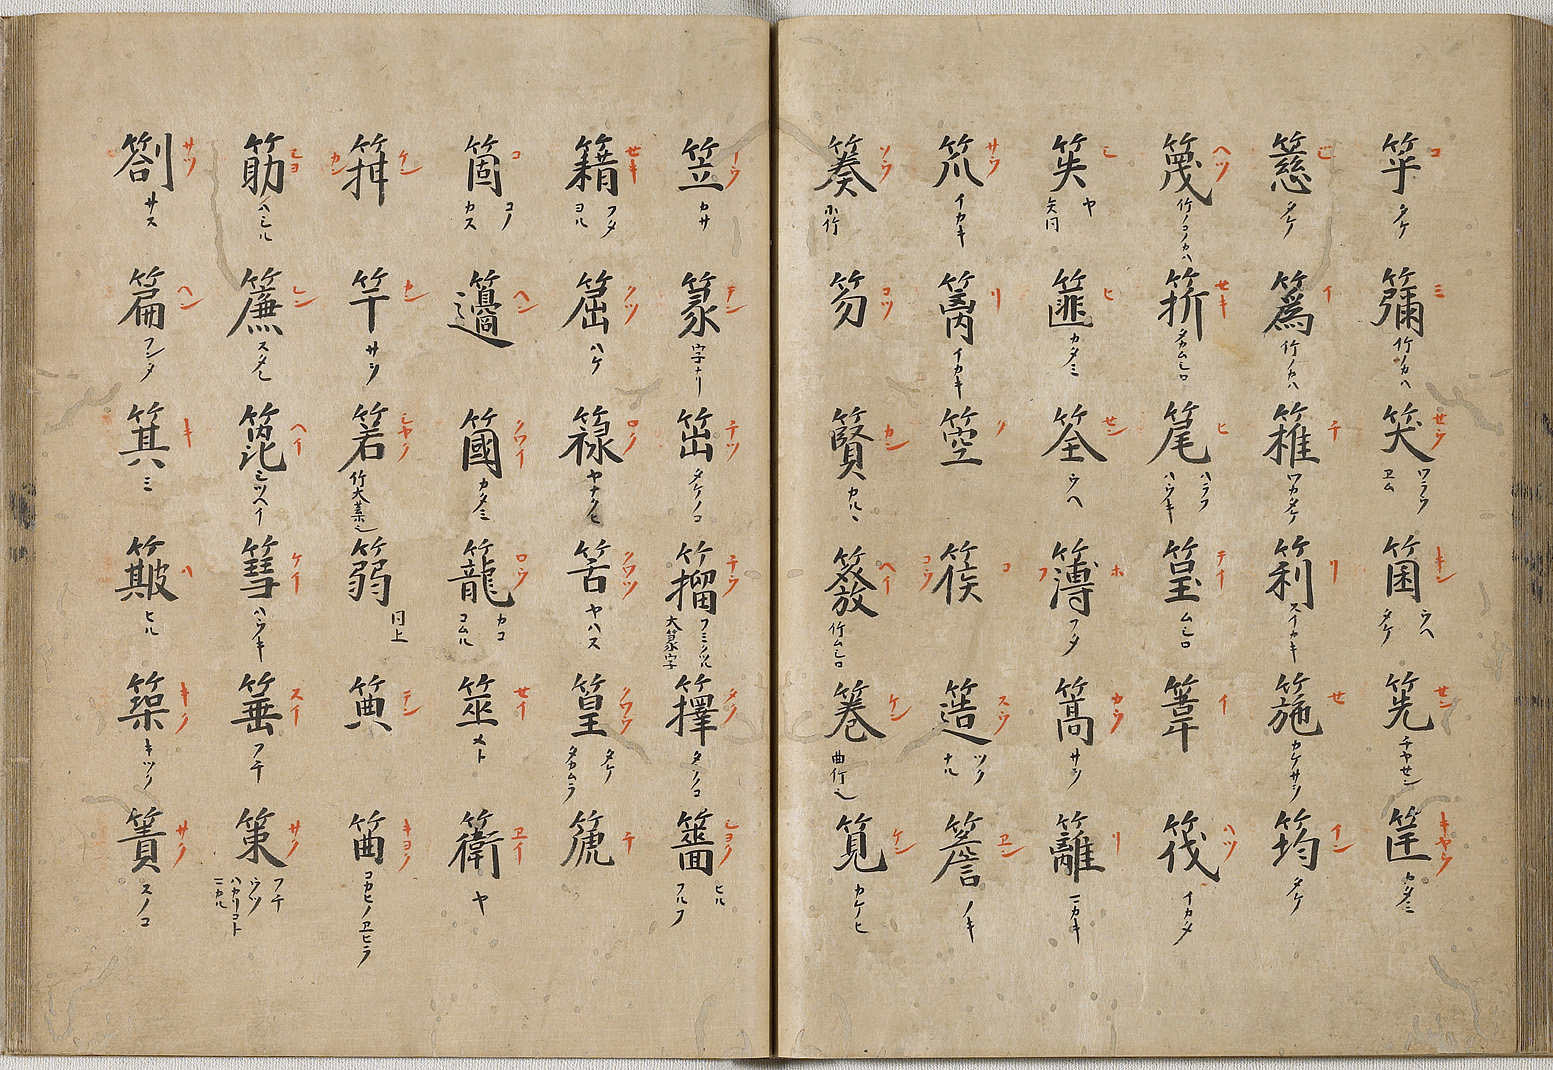 コ タケ ミ 竹ノカハ 笑 セウ ワラウ ヱム 箘 キン ウヘ タケ 筅 セン チヤセン 筐 キヤウ カタミ
タケ イ 竹ノカハ チ ワカタケ リ スイカキ セ カケサシ 筠 イン タケ
篾 ヘツ 竹ノコノカハ セキ タカムシロ ヒ ハラフ ハウキ テイ ムシロ イ 筏 ハツ イカタ
笶 シ ヤ 矢同 篚 ヒ カタミ 筌 セン ウヘ 簿 ホ フ フタ 篙 カウ サシ 籬 リ ニカキ
笊 サウ イカキ リ イカキ 箜 ク 篌 コ コウ 簉 スウ ツク ナル 簷 ヱン ノキ
ソウ 小竹 笏 コツ カン カルヽ ヘイ 竹ムシロ 箞 ケン 曲竹也 筧 ケン カケヒ
笠 リウ カサ 篆 テン 字ナリ 笜 チツ タケノコ 籀 チウ フミツクル 大篆字 籜 タク タケノコ シヨク ヒル フルフ
籍 セキ フタ ヨル クツ ハケ 籙 ロク ヤナクヒ 筈 クワツ ヤハス 篁 クワウ タケ タカムラ 篪 チ
箇 コ コノ カス 籩 ヘン 簂 クワイ カタミ 籠 ロウ カコ コムル 筮 セイ メト ヱイ ヤ
箝 ケン カン 竿 カン サシ 箬 シヤク 竹大葉也 篛 同上 テン 筁 キヨク コカヒノヱヒラ
筯 チヨ ハシル 簾 レン スタレ 篦 ヘイ ミツヘイ 篲 ケイ ハウキ 箠 スイ フチ 策 サク フチ ウツ ハカリコト ニカル
劄 サツ サス 篇 ヘン フンタ 箕 キ ミ 簸 ハ ヒル 築 キク キツク 簀 サク スノコ